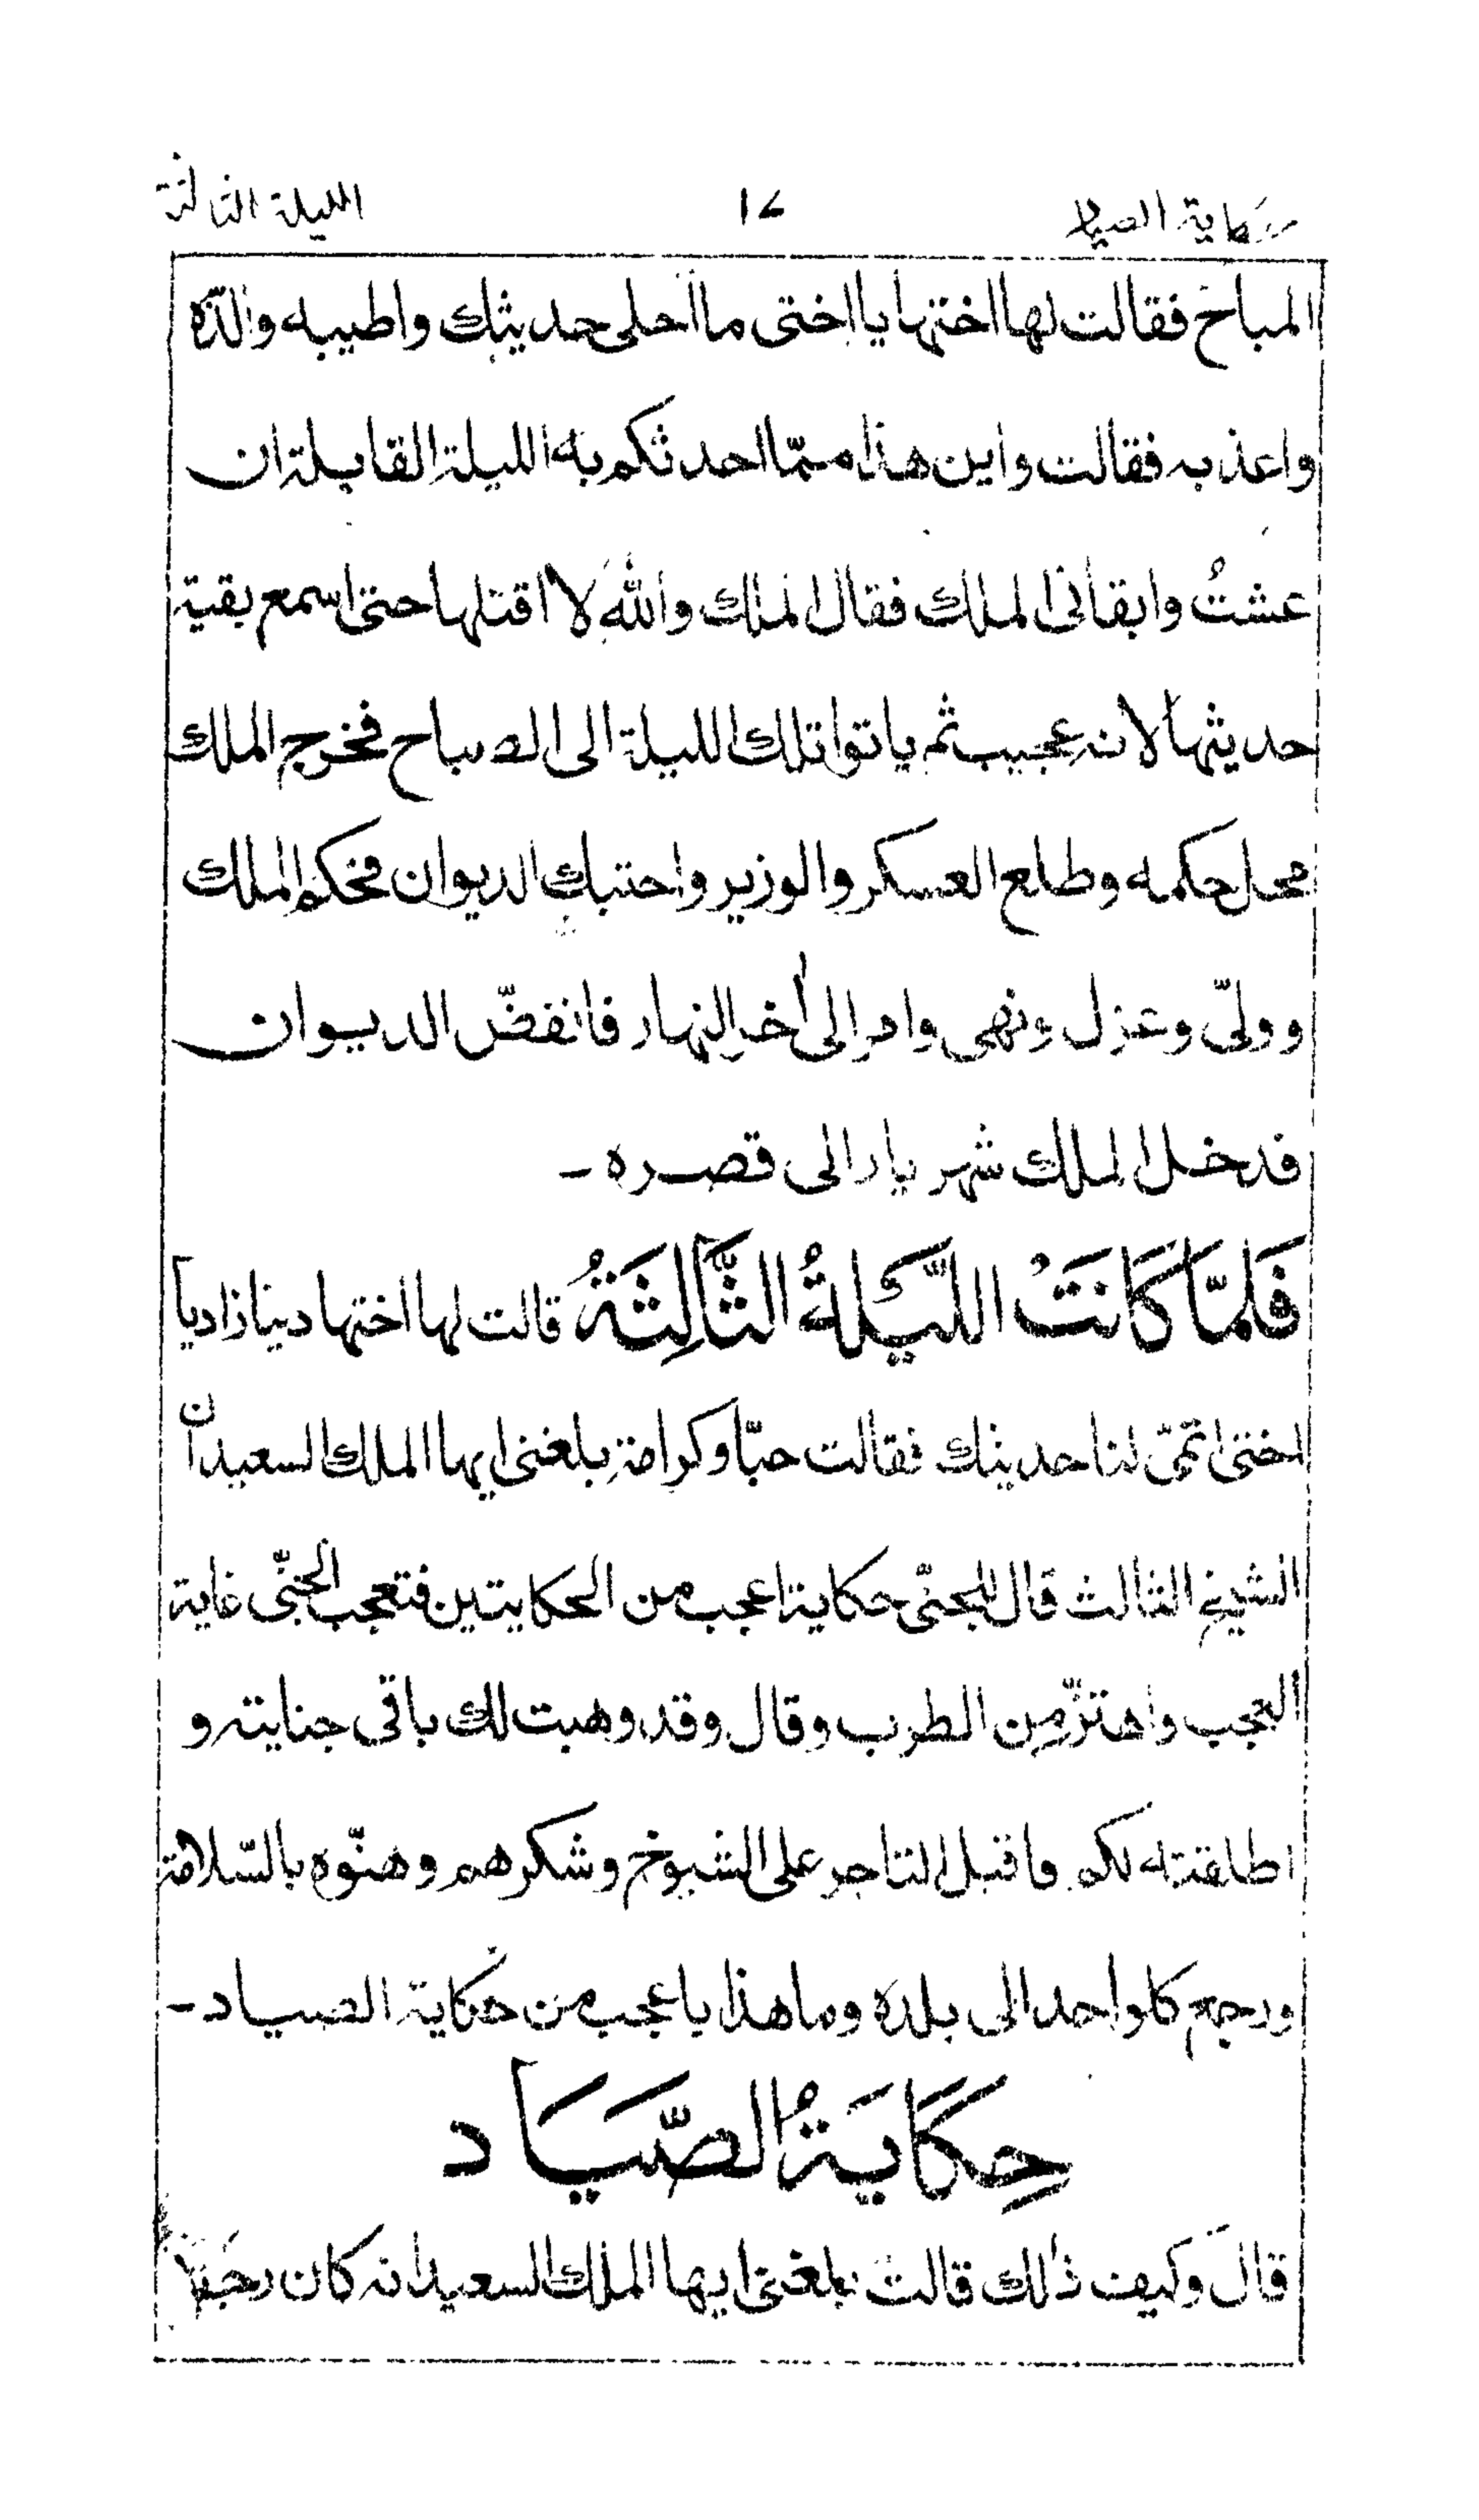 حكاية الصياد ١٧ الليلة الثالثة
المباح فقالت لها اختها يا اختى ما احلى حديثك واطيبه والذّه
واعذ به فقالت واين هذا ممّا احدثكم به الليلة القابلة ان
عشتُ وابقانى الملك فقال الملك والله لا اقتلها حتى اسمع بقية
حديثها لانه عجيب ثم باتوا تلك الليلة الى الصباح فخرج الملك
محل حكمه وطلع العسكر والوزير واحتبك الديوان فحكم الملك
و ولىّ وعزل ونهى وامر الى أخر النهار فانفضّ الديوان
فدخل الملك شهر يار الى قصره -
فَلَمَّا كَانَتْ اللَّيْلَةُ الثَّالِثَةُ قالت لها اختها دينا زاد يا
اختى اتمّى لنا حديثك فقالت حبّا وكرامة بلغنى ايها الملك السعيد ان
الشيخ الثالث قال للجنّى حكاية اعجب من الحكايتين فتعجب الجنّى غاية
العجب واهتزّ من الطرب وقال وقد وهبت لك باقى جنايته و
اطلقته لكم فاقبل التاجر على الشيوخ وشكرهم وهنّوه بالسّلامة
ورجع كلواحد الى بلده وما هذا باعجب من حكاية الصياد -
حِكَايَةُ الصَّيَّاد
قال وكيف ذلك قالت بلغنى ايها الملك السعيد انه كان رجلا